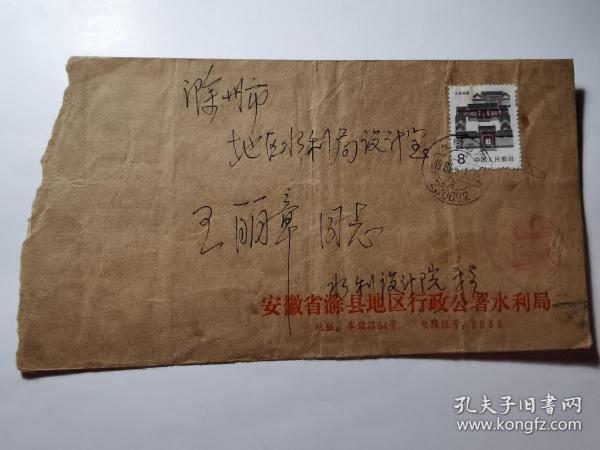 滁州市
地区水利局设计室
8分
中国人民邮政
王丽章 同志
水利设计院
安徽省滁县地区行政公署水利局
地址：车站路64号 电报挂号：3055
孔夫子旧书网
www.kongfz.com